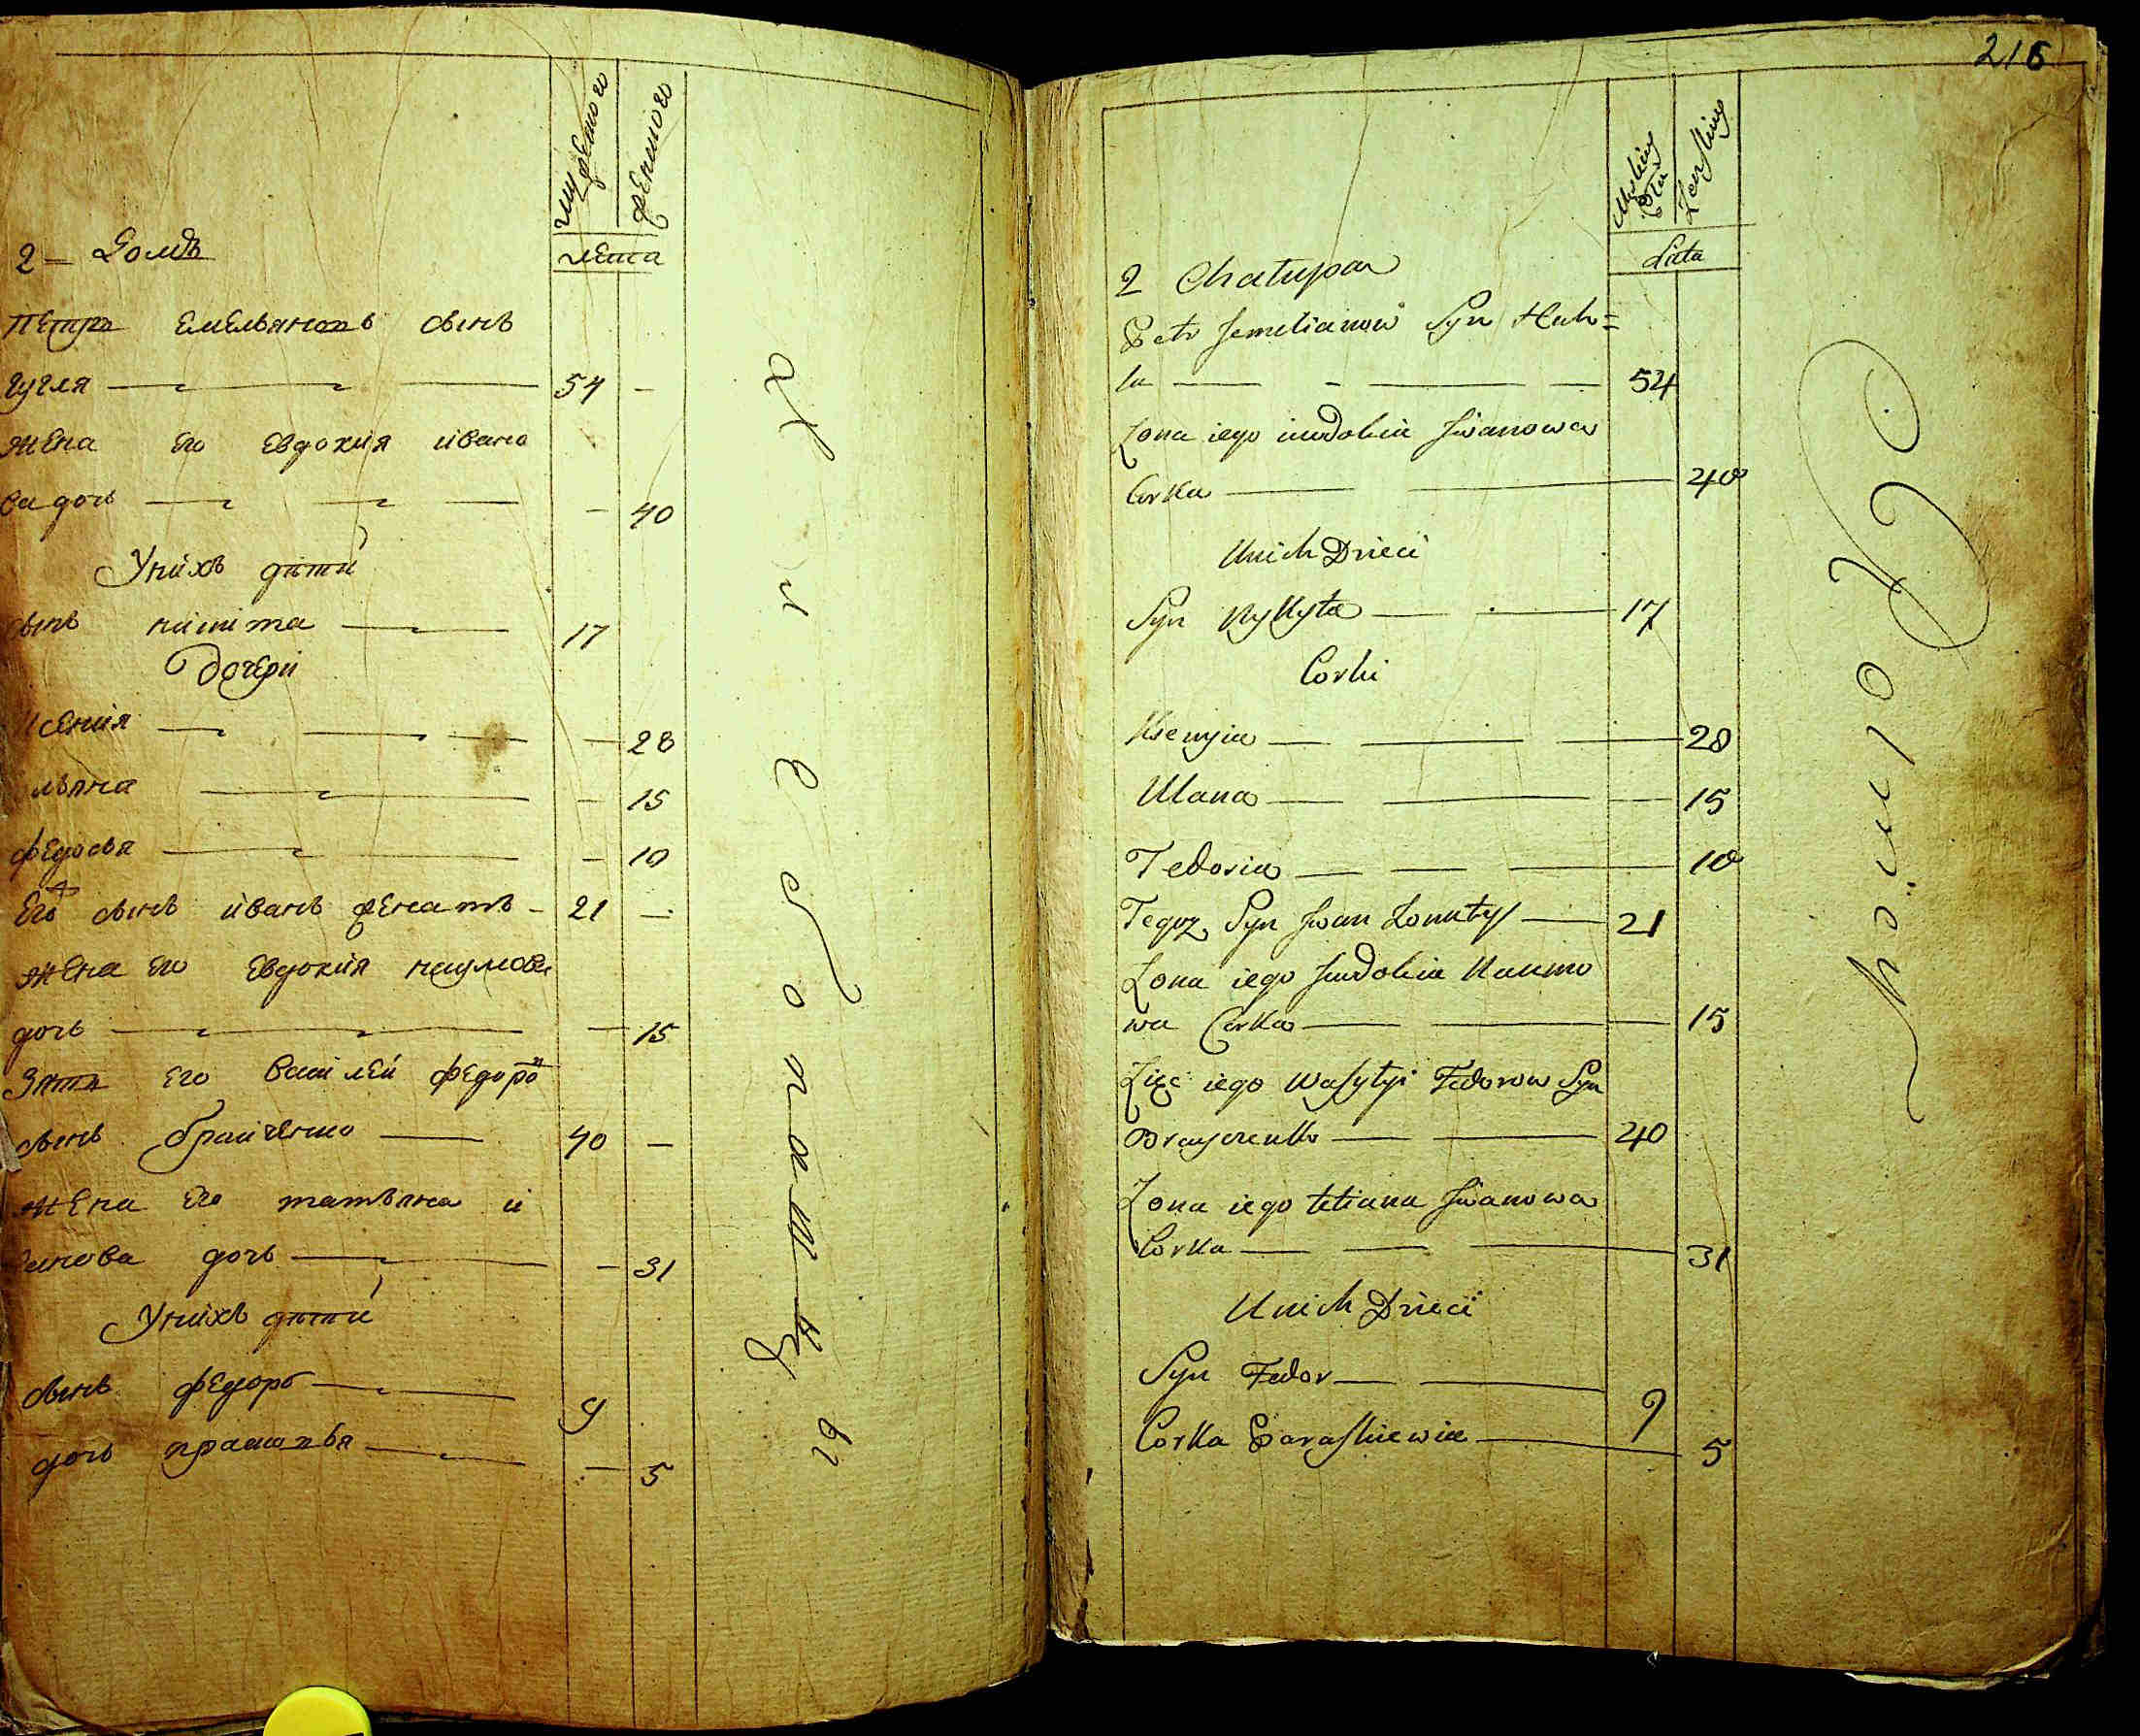 мужеского
женского
лета
2 — Домъ
Петръ Емельяновъ сынъ
гугля — 54 —
жена его Евдокия ивано
ва дочь — — 40
У нихъ дети
сынъ никита — 17
Дочери
ксения — — 28
льяна — — 15
федосья — — 10
Его сынъ иванъ женатъ — 21 —
жена его евдокия наумова
дочь — — 15
Зять его василей федоро
сынъ — 40 —
жена его татьяна и
ванова дочь — — 31
У нихъ дети
сынъ федоръ — 9
дочь прасковья — — 5
216
Męskiey
Płci
Żenskiey
Lata
2 Chałupa
Petr Jemelianow Syn Huh=
la — 54
Żona iego iewdokia Jwanowa
Corka — 40
U nich Dzieci
Syn Nykyta — 17
Corki
Ksenyia — 28
Ulana — 15
Fedosia — 10
Tegoż Syn Jwan Żonaty — 21
Żona iego Jewdokia Naumo
wa Corka — 15
Zięć iego Wasylyi Fedorow Syn
— 40
Żona iego tetiana Jwanowa
Corka — 31
U nich Dzieci
Syn Fedor — 9
Corka Paraskiewia — 5